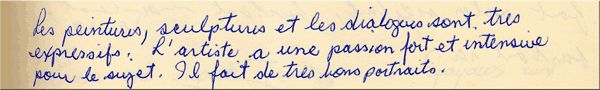 Les peintures, sculptures et les dialogues sont tres
expressifs. L'artiste a une passion fort et intensive
pour le sujet. Il fait de tres bons portraits.